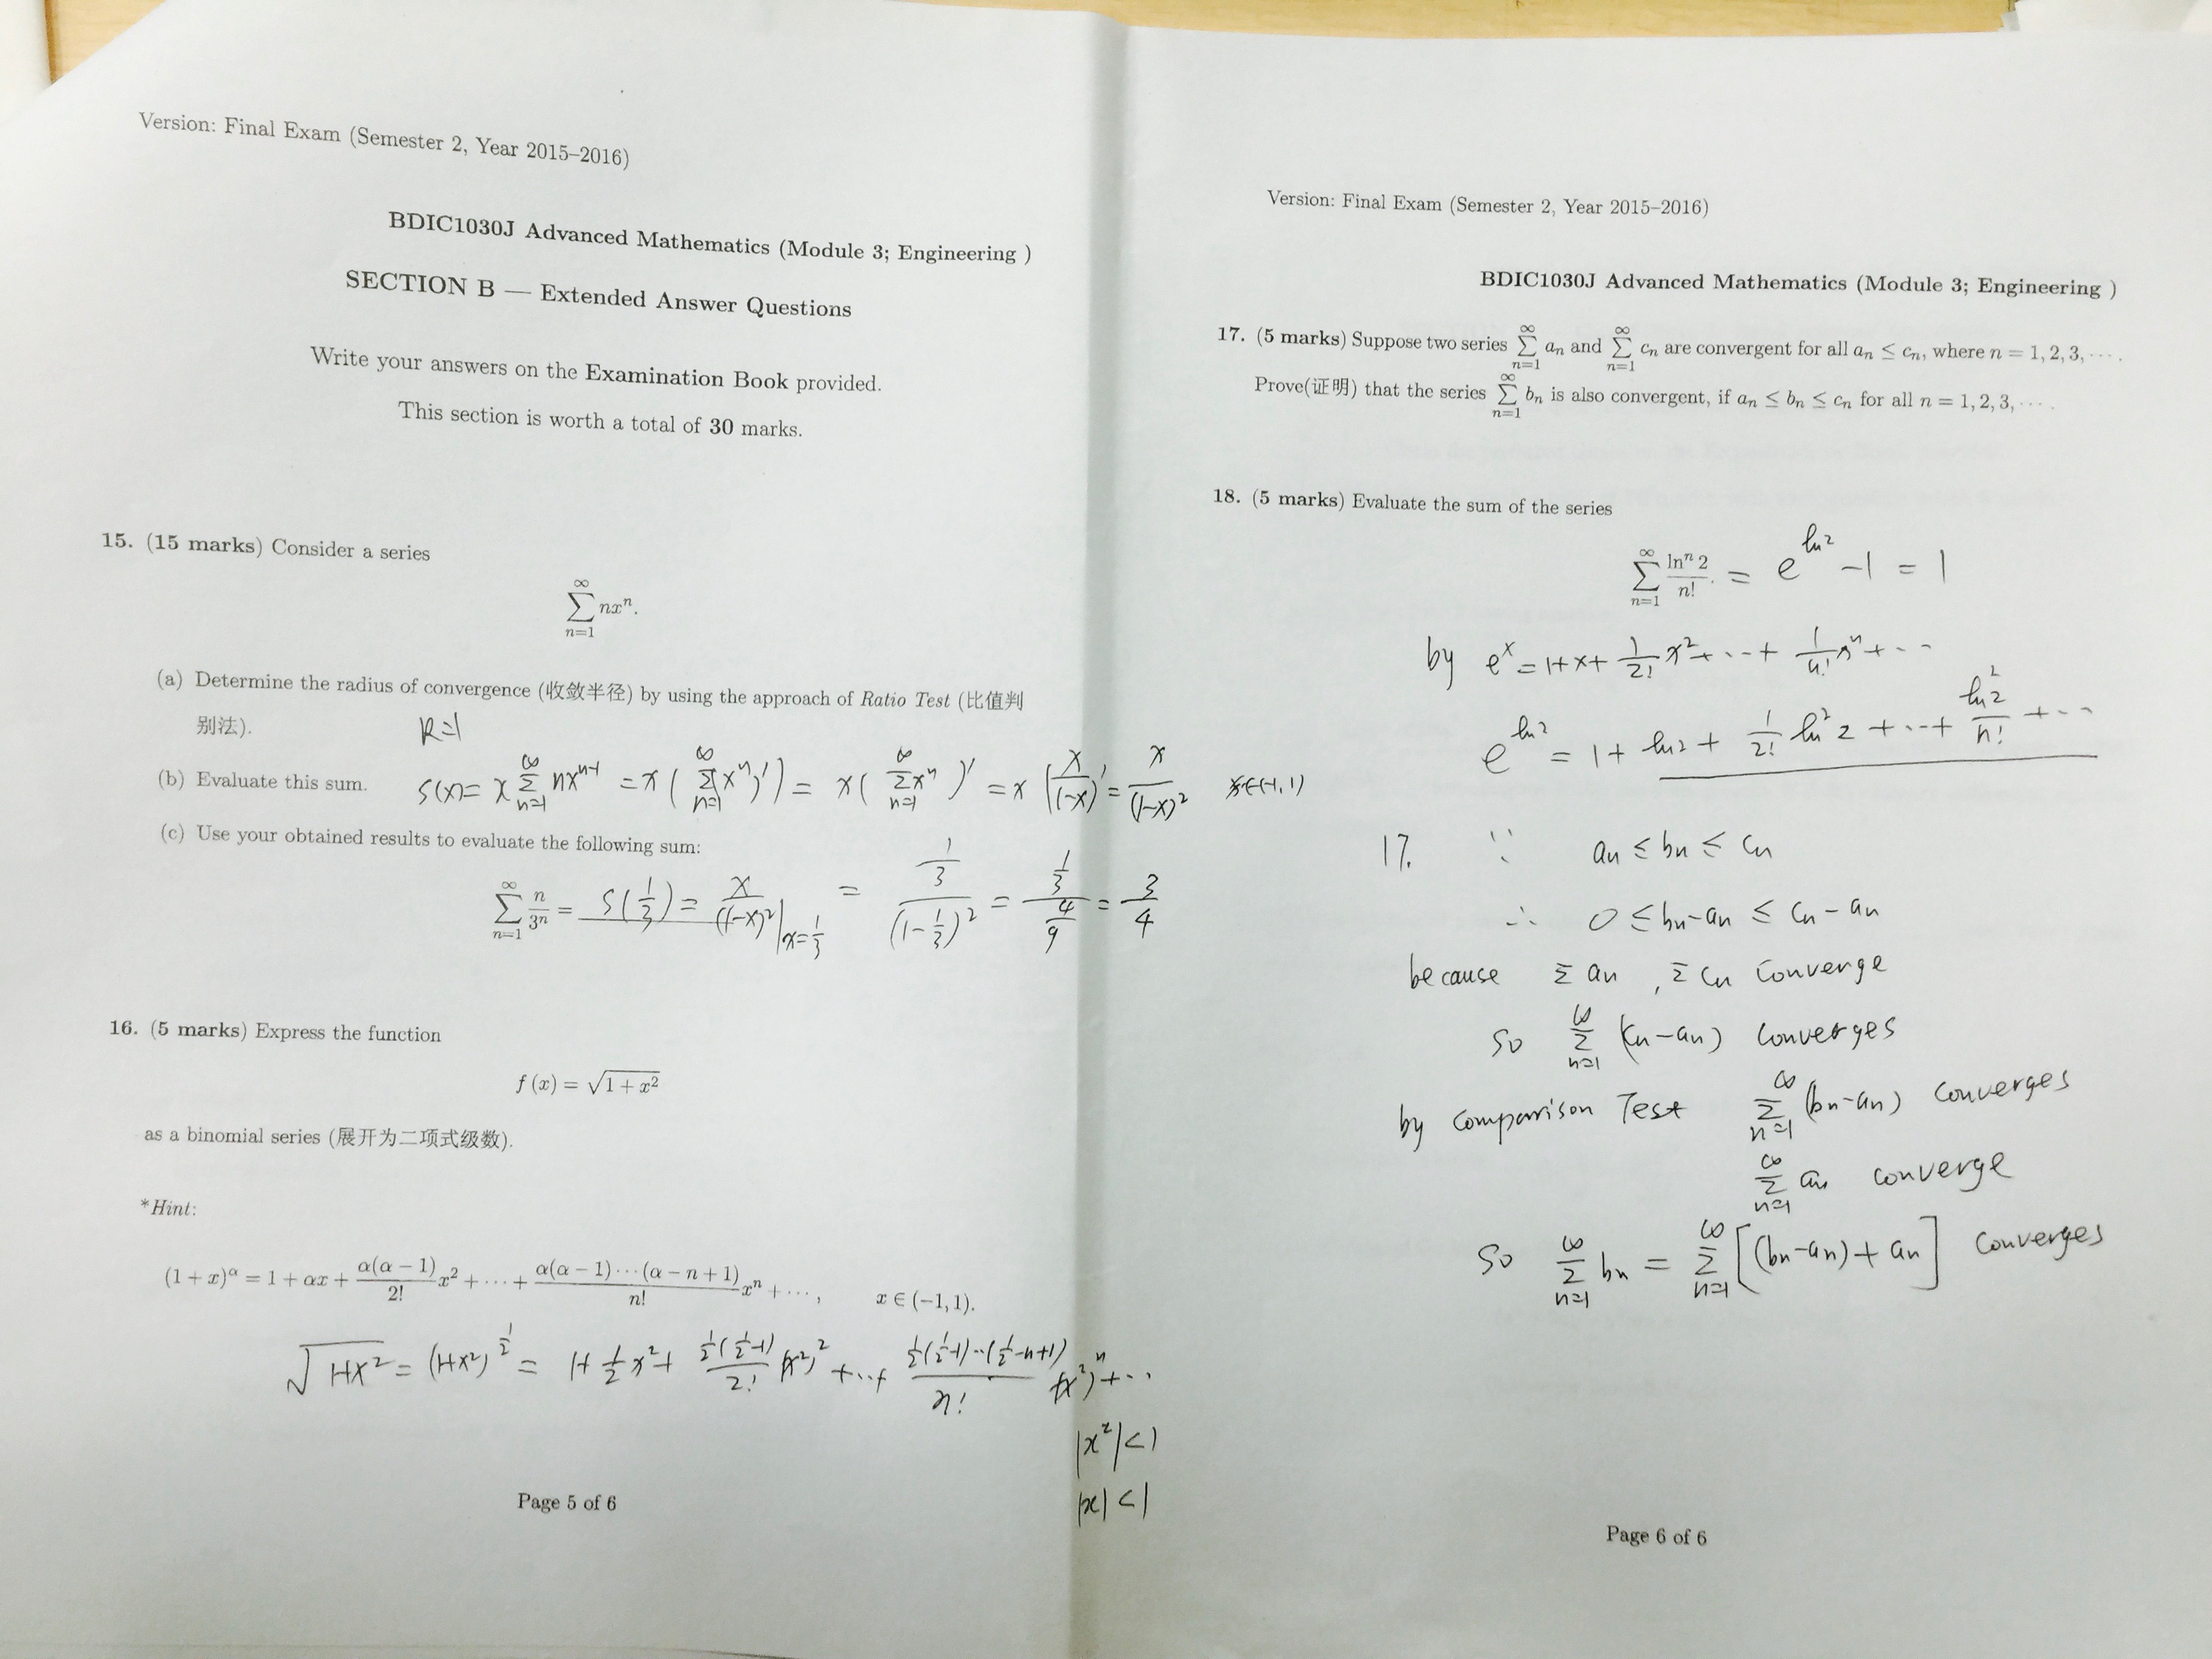 Version: Final Exam (Semester 2, Year 2015–2016)
BDIC1030J Advanced Mathematics (Module 3; Engineering )
SECTION B — Extended Answer Questions
Write your answers on the Examination Book provided.
This section is worth a total of 30 marks.
15. (15 marks) Consider a series
∞∑n=1 nxⁿ.
(a) Determine the radius of convergence (收敛半径) by using the approach of Ratio Test (比值判
别法). R=1
(b) Evaluate this sum. S(x) = x ∞∑n=1 nxⁿ⁻¹ = x ( ∞∑n=1 (xⁿ)' ) = x ( ∞∑n=1 xⁿ )' = x (x/(1-x))' = x/(1-x)² x∈(-1,1)
(c) Use your obtained results to evaluate the following sum:
∞∑n=1 n/3ⁿ = S(1/3) = x/(1-x)² |x=1/3 = (1/3)/(1-1/3)² = (1/3)/(4/9) = 3/4
16. (5 marks) Express the function
f (x) = √(1 + x²)
as a binomial series (展开为二项式级数).
*Hint:
(1 + x)^α = 1 + αx + α(α − 1)/2! x² + ⋯ + α(α − 1)⋯(α − n + 1)/n! xⁿ + ⋯, x ∈ (−1, 1).
√(1+x²) = (1+x²)^(1/2) = 1+ 1/2 x² + 1/2(1/2-1)/2! (x²)² + ⋯ + 1/2(1/2-1)⋯(1/2-n+1)/n! (x²)ⁿ + ⋯
|x²| < 1
|x| < 1
Page 5 of 6
Version: Final Exam (Semester 2, Year 2015–2016)
BDIC1030J Advanced Mathematics (Module 3; Engineering )
17. (5 marks) Suppose two series ∞∑n=1 aₙ and ∞∑n=1 cₙ are convergent for all aₙ ≤ cₙ, where n = 1, 2, 3, ⋯.
Prove(证明) that the series ∞∑n=1 bₙ is also convergent, if aₙ ≤ bₙ ≤ cₙ for all n = 1, 2, 3, ⋯.
18. (5 marks) Evaluate the sum of the series
∞∑n=1 lnⁿ 2/n! . = e^(ln2) - 1 = 1
by eˣ = 1+x+ 1/2! x² + ⋯ + 1/n! xⁿ + ⋯
e^(ln2) = 1+ ln2 + 1/2! ln²2 + ⋯ + ln²2/n! + ⋯
17. ∵ aₙ ≤ bₙ ≤ cₙ
∴ 0 ≤ bₙ-aₙ ≤ cₙ-aₙ
because Σ aₙ , Σ cₙ converge
so ∞∑n=1 (cₙ-aₙ) converges
by comparison Test ∞∑n=1 (bₙ-aₙ) converges
∞∑n=1 aₙ converge
so ∞∑n=1 bₙ = ∞∑n=1 [(bₙ-aₙ)+ aₙ] converges
Page 6 of 6